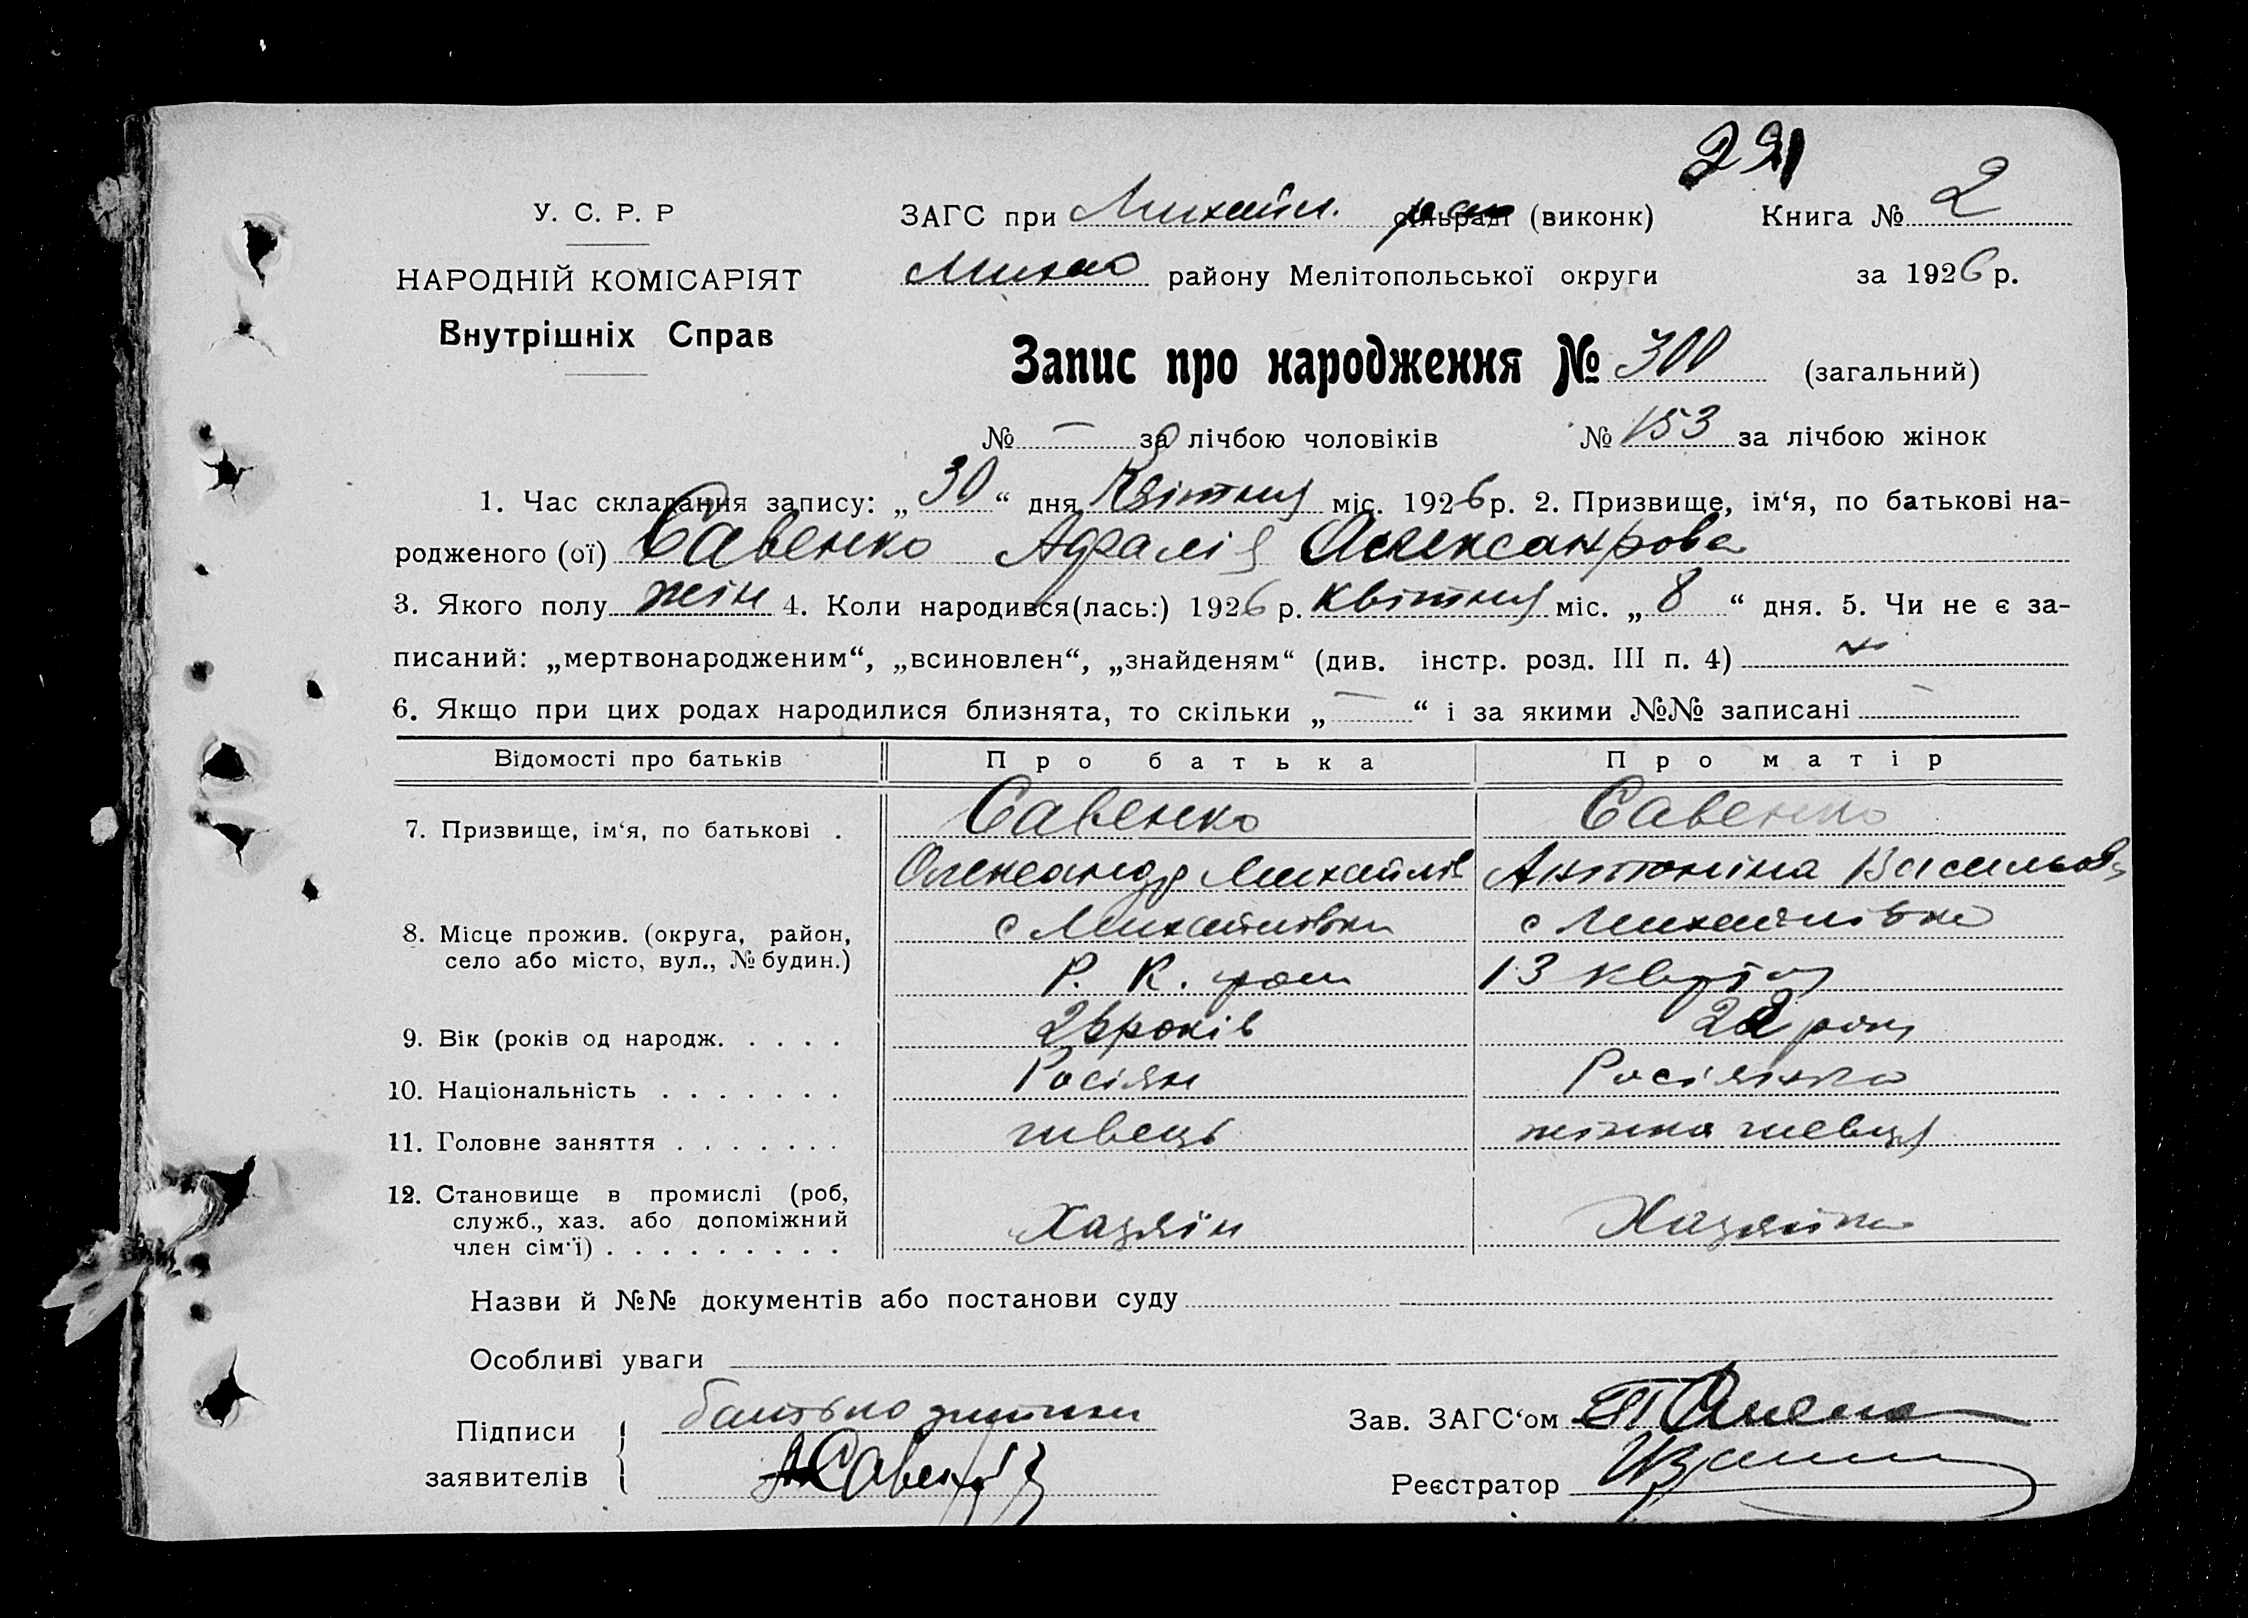 221
У. С. Р. Р
ЗАГС при Михайл. сільраді (виконк) Книга № 2
НАРОДНІЙ КОМІСАРІЯТ
району Мелітопольської округи за 1926 р.
Внутрішніх Справ
Запис про народження № 300 (загальний)
№ — за лічбою чоловіків № 153 за лічбою жінок
1. Час складання запису: „30“ дня Квітня міс. 1926 р. 2. Призвище, ім‘я, по батькові на-
родженого (ої) Савенко Адралія Олександрова
3. Якого полу жін 4. Коли народився(лась:) 1926 р. квітня міс. „8“ дня. 5. Чи не є за-
писаний: „мертвонародженим“, „всиновлен“, „знайденям“ (див. інстр. розд. III п. 4)
6. Якщо при цих родах народилися близнята, то скільки „—“ і за якими №№ записані —
Відомості про батьків Про батька Про матір
7. Призвище, ім‘я, по батькові . Савенко Савенко
Олександр Михайлів Антоніна Васильов
8. Місце прожив. (округа, район, с Михайлівки с Михайлівка
село або місто, вул., № будин.) Р. К. 13
9. Вік (років од народж. . . . . 26 років 22 роки
10. Національність . . . . . . . Росіян Росіянка
11. Головне заняття . . . . . . . швець жінка шевця
12. Становище в промислі (роб,
служб., хаз. або допоміжний Хазяїн Хазяйка
член сім‘ї) . . . . . . . . .
Назви й №№ документів або постанови суду
Особливі уваги
Підписи батько дитини Зав. ЗАГС‘ом
заявителів АСавенко Реєстратор